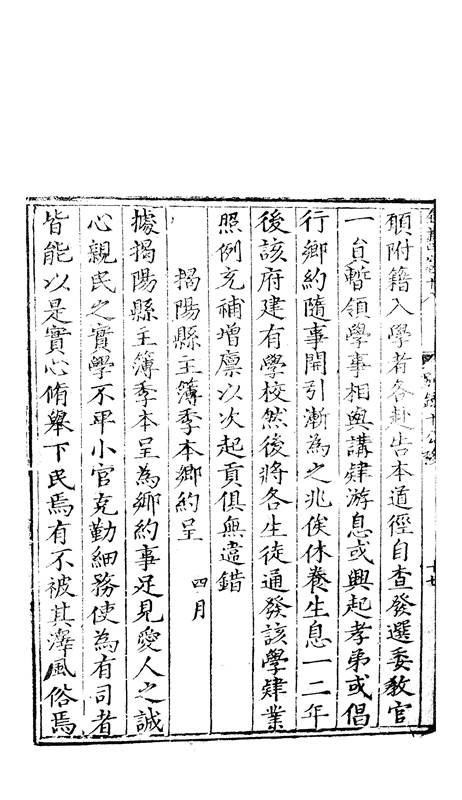 願附籍入學者各赴告本道徑自查發選委教官
一員暫領學事相與講肄游息或興起孝弟或倡
行鄉約隨事開引漸為之兆俟休養生息一二年
後該府建有學校然後將各生徒通發該學肄業
照例充補增廪以次起貢俱無違錯
揭陽縣主簿季本鄉約呈　四月
據揭陽縣主簿季本呈為鄉約事足見愛人之誠
心親民之實學不卑小官克勤細務使為有司者
皆能以是實心脩舉下民焉有不被其澤風俗焉